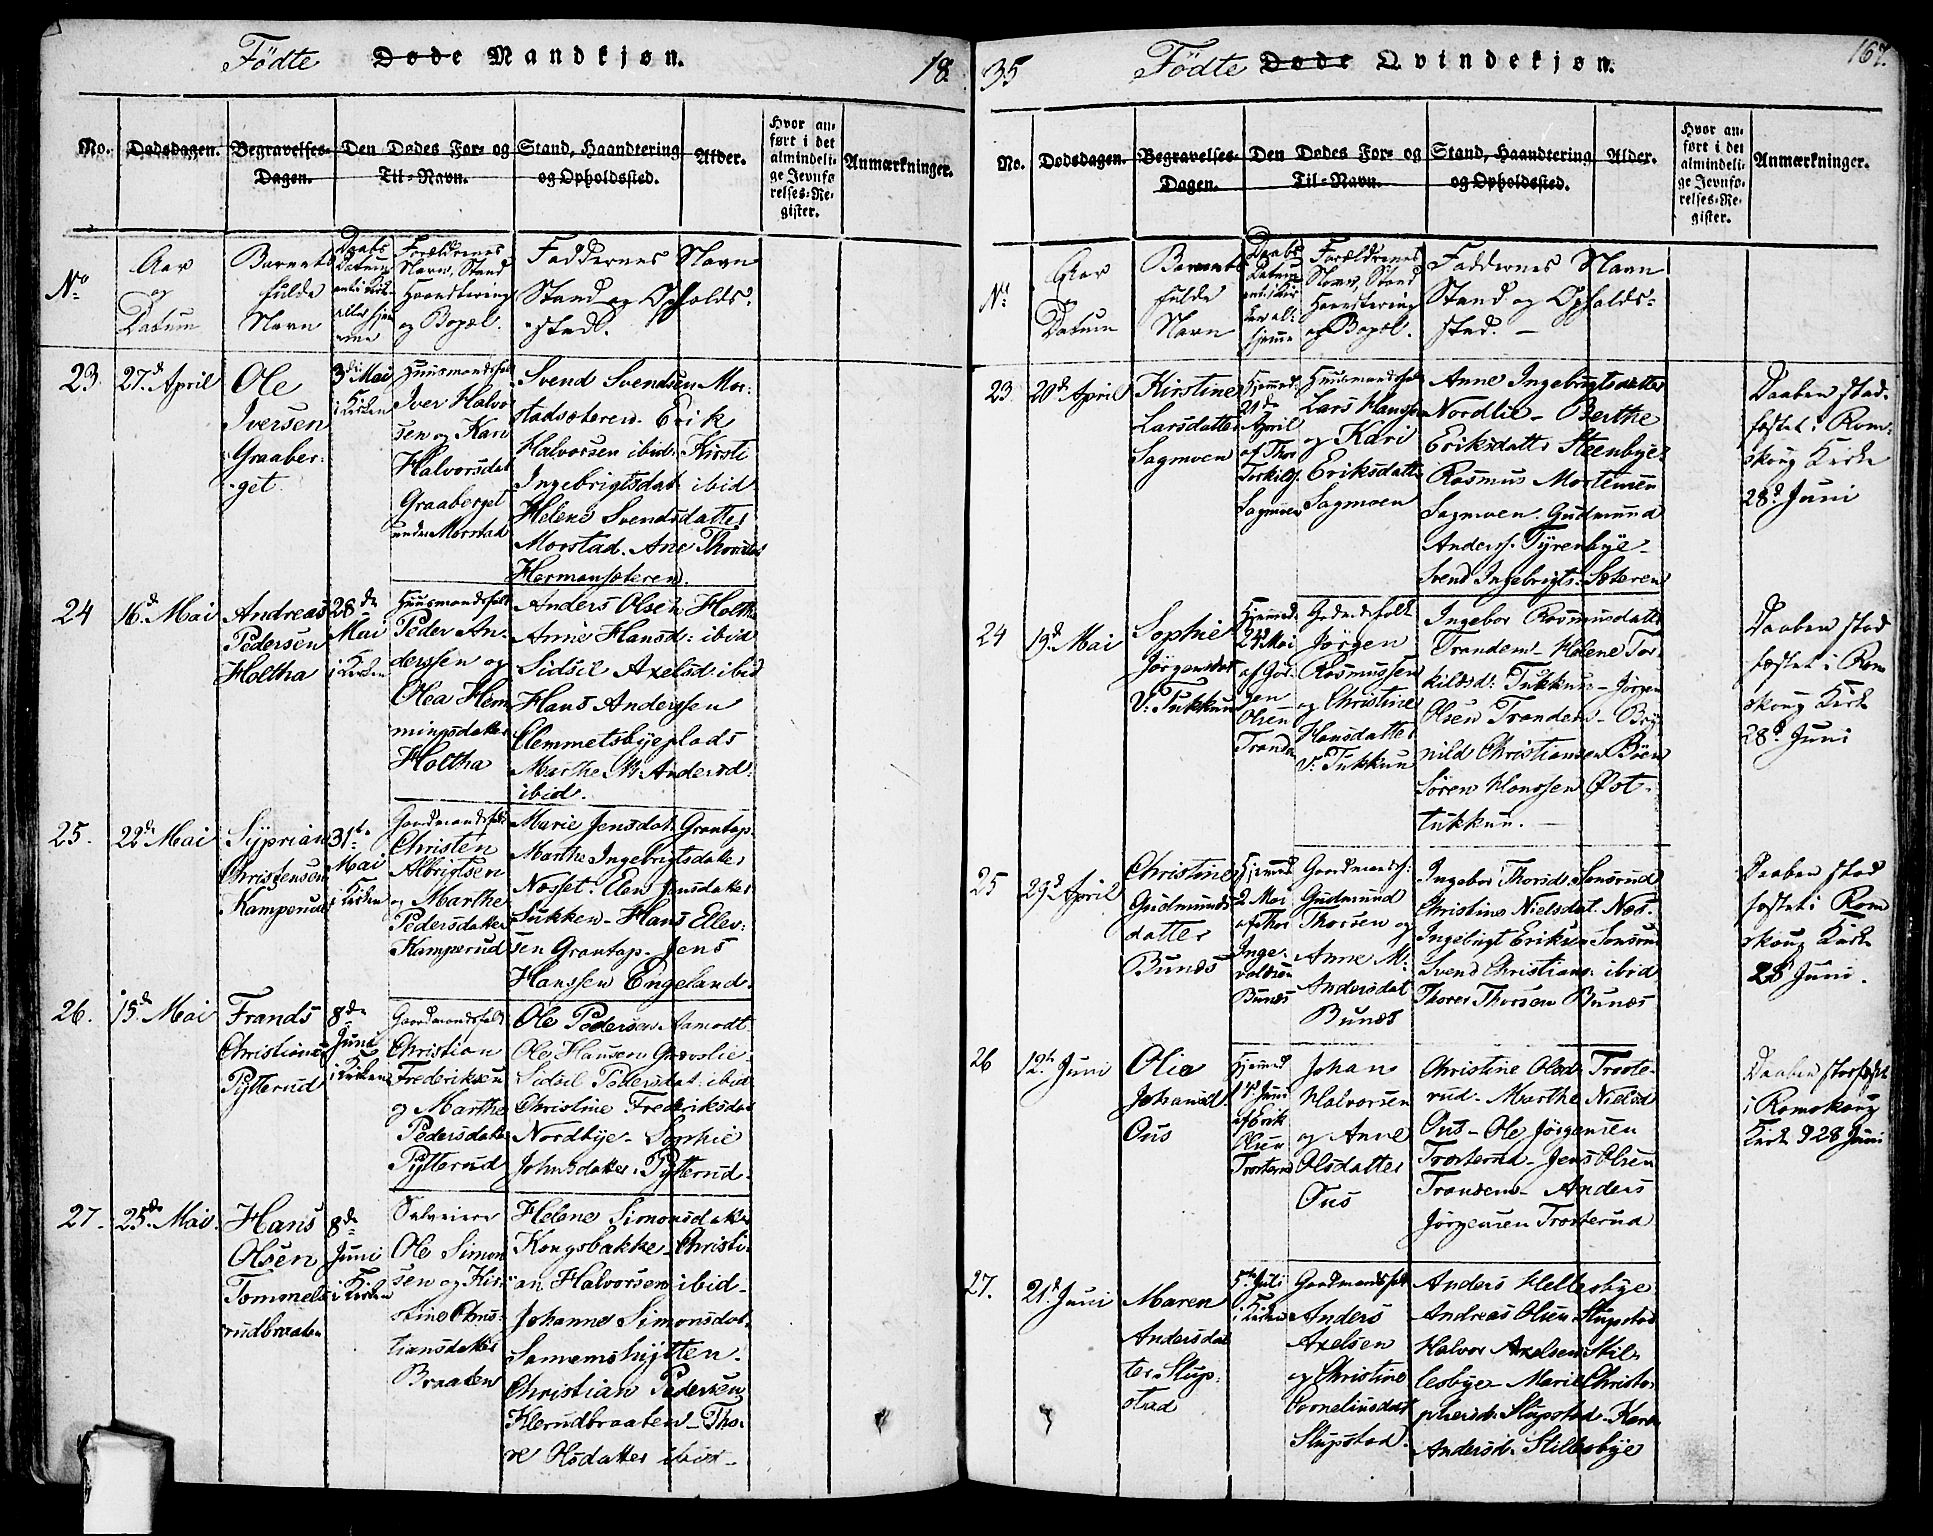 Födte Døde Mandkjøn.
18
No.
Dødsdagen.
Begravelses-
Dagen.
Den Dødes For- og
Til-Navn.
Stand, Haandtering
og Opholdssted.
Alder.
Hvor an-
ført i det
almindeli-
ge Jevnfø-
relses-Re-
gister.
Anmærkninger.
No
Aar
og
Datum
Barnets
fulde
Navn
Daabs
Datum
enten i Kirk
eller hjem
me
Forældrenes
Navn, Stand
Haandtering
og Bopæl.
Faddernes Navn
Stand og Opholds-
sted.
23.
27d April
Ole
Iversen
Graaber-
get
3die Mai
i Kirken
Huusmandsfolk
Iver Halvor
sen og Kari
Halvorsdat
Graaberget
under Morstad
Svend Svendsen Mor-
stadsæteren. Erik
Halvorsen ibid: Kirsti
Ingebrigtsdat: ibid
Helene Svendsdatter
Morstad. Ane Thorsdat
Hermansæteren.
24
16d Mai
Andreas
Pedersen
Holtha
28de
Mai
i Kirken
Huusmandsfolk
Peder An-
derssen og
Olea Hem
mingsdatter
Holtha
Anders Olsen Holtha
Anne Hansd: ibid
Sidsil Axelsd: ibid
Hans Anderssen
Clemmetsbyeplads
Marthe M. Andersd:
ibid.
25.
22d Mai
Syprian
Christensen
Kamperud
31te
Mai
i Kirken
Gaardmandsfolk
Christen
Albrigtsen
og Marthe
Pedersdatter
Kamperud
Marie Jensdat. Grantop.
Marthe Ingebrigtsdatter
Næsset. Elen Jensdatter
Sukken - Hans Elev-
sen Grantop. Jens
Hanssen Engeland.
26.
15d Mai
Frands
Christiansen
Pytterud
8de
Juni
i Kirken
Gaardmandsfolk
Christian
Frederiksen
og Marthe
Pedersdatter
Pytterud
Ole Pedersen Aamodt
Ole Hansen Grøvslie
Sidsil Pedersdat: ibid
Christine Frederiksdat
Nordbye - Sophie
Johnsdatter Pytterud.
27.
25de Mai
Hans
Olsen
Tommels
rudbraaten
8de
Juni
i Kirken
Selveiere
Ole Simon
sen og Kir-
stine Chris-
tiansdatter
Braaten
Helene Simonsdatter
Kongsbakke - Christi-
an Halvorsen ibid -
Johanne Simonsdat.
Christian Pedersen
Klerudbraaten - Tho-
re Olsdatter ibid -
35
Födte Døde Qvindekjøn.
167.
No.
Dødsdagen.
Begravelses-
Dagen.
Den Dødes For- og
Til-Navn.
Stand, Haandtering
og Opholdssted.
Alder.
Hvor an-
ført i det
almindeli-
ge Jevnfø-
relses-Re-
gister.
Anmærkninger.
No
Aar
og
Datum
Barnets
fulde
Navn
Daabs
Datum
enten i Kir
ken el-
hjemme
Forældrenes
Navn, Stand
Haandtering
og Bopæl.
Faddernes Navn
Stand og Opholds-
sted. -
23.
20d April
Kirstine
Larsdatter
Sagmoen
Hjemmed.
21de
April
af Thor
Torkilds.
Sagmoen
Huusmandsfolk
Lars Hansen
og Kari
Eriksdatter
Sagmoen
Anne Ingebrigtsdatter
Nordlie - Berthe
Eriksdatter Steenbye.
Rasmus Mortensen
Sagmoen. Gudmund
Anderss. Tyrenbye -
Svend Ingebrigts. Sæteren
Daaben stad-
fæstet i Rom-
skoug Kirke
28d Juni
24
19d Mai
Sophie
Jörgensdat
V: Tukkun
Hjemmed.
24d Mai
af Jör-
gen
Olsen
Trandem
Gaardsfolk
Jörgen
Rasmussen
og Christine
Hansdatter
V: Tukkun
Ingebor Rasmusdatter
Trandem - Helene Tor-
kildsd: Tukkun - Jörgen
Olsen Trandem - Bryn
nild Christiansen Böen
Sören Hanssen Øst-
tukkun. -
Daaben stad
fæstet i Rom
skoug Kirke
28d Juni
25
29d April
Christine
Gudmunds
datter
Bunæs
Hjemmed.
2 Mai
af Thor
Inge-
voldsen
Bunæs
Gaardmandsf:
Gudmund
Thorsen og
Anne M:
Andersdat
Bunæs
Ingebor Thorsd: Sonsrud
Christine Nielsdat. Næs.
Ingebrigt Eriksen Sonsrud
Svend Christians: ibid
Thorer Thorsen Bunæs
Daaben stad
fæstet i Rom
skoug Kirke
28 Juni.
26
12te Juni
Olia
Johansd.
Ous
Hjemmed
14d Juni
af Erik
Olsen
Trosterud
Johan
Halvorsen
og Anne
Olsdatter
Ous
Christine Olsd: Troste-
rud - Marthe Nielsd
Ous - Ole Jörgensen
Trosterud - Jens Olsen
Trandem - Anders
Jörgensen Trosterud
Daaben stadfæst
i Romskoug
Kirke d 28 Juni
27.
21d Juni
Maren
Andersdat
ter Slup-
stad
5te Juli
i Kirken
Gaardmandsfolk
Anders
Axelsen
og Christine
Corneliusdat
Slupstad.
Anders Hellesbye
Andreas Olsen Slupstad
Halvor Axelsen Stil-
lesbye - Marie Christo-
phersd. Slupstad - Karen
Andersd. Stillesbye